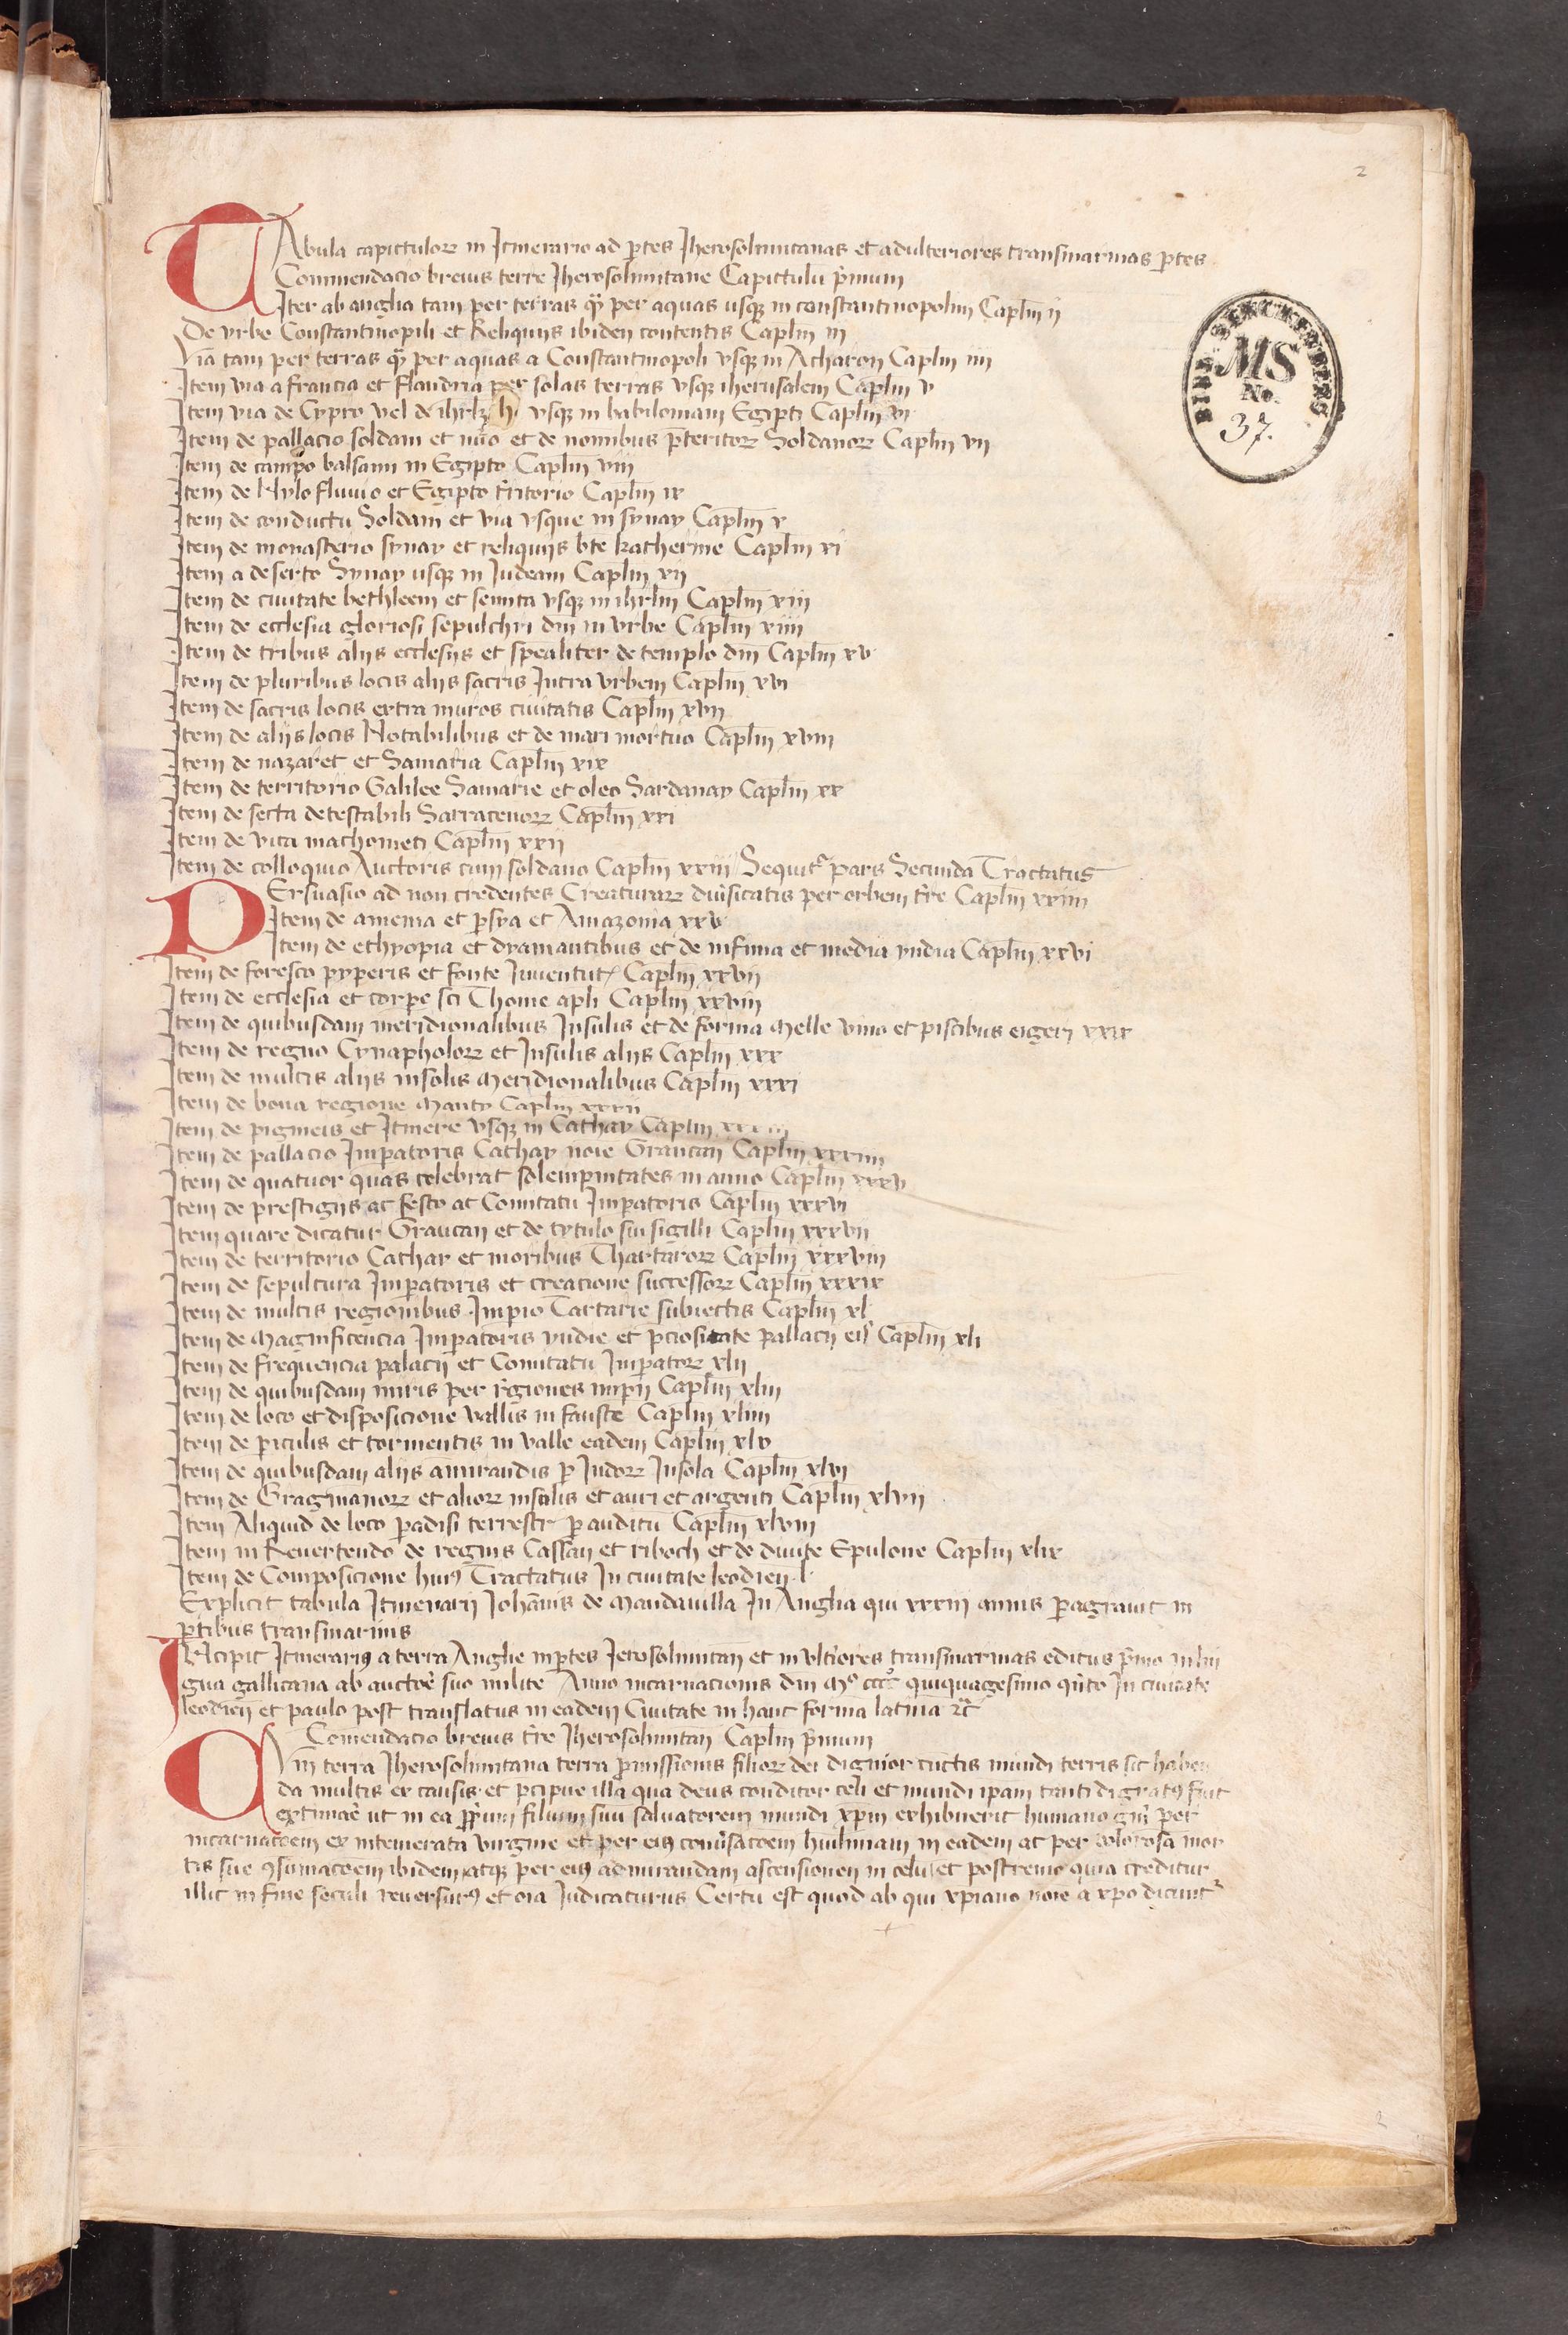 2
TAbula capictulorꝝ in Itinerario ad ꝑtes Jherosolimitanas et ad ulteriores transmarinas ꝑtes
Commendacio breuis terre Jherosolimitane Capictulū p̄mum
Iter ab anglia tam per terras qͣ per aquas usqꝫ in constantinopolim Caplm̄ ii
De vrbe Constantinopili et Reliquiis ibidem contentis Caplm̄ iii
Via tam per terras qͣ per aquas a Constantinopoli vsqꝫ in Atharon Caplm̄ iiii
Item via a francia et flandria per solas terras vsqꝫ iherusalem Caplm̄ v
Item via de Cypro vel de vsqꝫ in babiloniam Egipti Caplm̄ vi
Item de pallacio soldani et et de nominibus p̄teritorꝝ Soldanorꝝ Caplm̄ vii
Item de campo balsami in Egipto Caplm̄ viii
Item de Nylo fluuio et Egipto t̄ritorio Caplm̄ ix
Item de conductu Soldani et via vsque in synay Caplm̄ x
Item de monasterio synay et reliquiis bt̄e katherine Caplm̄ xi
Item a deserto Synay usqꝫ in Judeam Caplm̄ xii
Item de ciuitate bethleem et semita vsqꝫ in ihrlm̄ Caplm̄ xiii
Item de ecclesia gloriosi sepulchri dn̄i in vrbe Caplm̄ xiiii
Item de tribus aliis ecclesiis et spealiter de templo dn̄i Caplm̄ xv
Item de pluribus locis aliis sacris Intra vrbem Caplm̄ xvi
Item de sacris locis extra muros ciuitatis Caplm̄ xvii
Item de aliis locis Notabilibus et de mari mortuo Caplm̄ xviii
Item de nazaret et Samaria Caplm̄ xix
Item de territorio Galilee Samarie et oleo Sardanay Caplm̄ xx
Item de secta detestabili Sarracenorꝝ Caplm̄ xxi
Item de vita machometi Caplm̄ xxii
Item de colloquio Auctoris cum soldano Caplm̄ xxiii Sequit᷑ pars Secunda Tractatus
PErsuasio ad non credentes Creaturarꝝ diuīsicatis per orbem t̄re Caplm̄ xxiiii
Item de amenia et ꝑsya et Amazonia xxv
Item de ethyopia et dyamantibus et de infima et media yndia Caplm̄ xxvi
Item de foresto pyperis et fonte Juuentut᷑ Caplm̄ xxvii
Item de ecclesia et corꝑe sci Thome apli Caplm̄ xxviii
Item de quibusdam meridionalibus Insulis et de forma Melle vino et piscibus xxix
Item de regno Cynapholorꝝ et Insulis aliis Caplm̄ xxx
Item de multis aliis insolis Meridionalibus Caplm̄ xxxi
Item de bona regione Manty Caplm̄ xxxii
Item de pigmeis et Itinere vsqꝫ in Cathay Caplm̄ xxxiii
Item de pallacio Imꝑatoris Cathay noīe Graucan Caplm̄ xxxiiii
Item de quatuor quas celebrat solempnitates in anno Caplm̄ xxxv
Item de prestigiis ac festo ac Comitatu Imꝑatoris Caplm̄ xxxvi
Item quare dicatur Graucan et de tytulo sui sigilli Caplm̄ xxxvii
Item de territorio Cathar et moribus Thartarorꝝ Caplm̄ xxxviii
Item de sepultura Imꝑatoris et creacione successorꝝ Caplm̄ xxxix
Item de multis regionibus Imꝑio Tartarie subiectis Caplm̄ xl
Item de Magnificencia Imꝑatoris yndie et p̄ciositate pallacii ei᷒ Caplm̄ xli
Item de frequencia palacii et Comitatu Imꝑatorꝝ xlii
Item de quibusdam miris per rēgiones imꝑii Caplm̄ xliii
Item de loco et disposicione vallis in fauste Caplm̄ xliiii
Item de ꝑiculis et tormentis in valle eadem Caplm̄ xlv
Item de quibusdam aliis amirandis ꝑ Indorꝝ Insola Caplm̄ xlvi
Item de Gragmanorꝝ et aliorꝝ insulis et auri et argenti Caplm̄ xlvii
Item Aliquid de loco ꝑadisi terrestr᷑ ꝑ auditū Caplm̄ xlviii
Item in Reuertendo de regnis Cassan et riboch et de diuite Epulone Caplm̄ xlix
Item de Composicione huiꝰ Tractatus In ciuitate leodien̄ l
Explicit tabula Itinerarii Johānis de Mandauilla In Anglia qui xxxiii annis ꝑagrauit in
ꝑtibus transmarinis
INcipit Itinerariꝰ a terra Anglie in ꝑtes Jerosolimitan̄ et in vlt̄iores transmarinas editus p̄mo in lin
gua gallicana ab auctor̄e suo milite Anno incarnacionis dn̄i Mᵒ cccᵒ quiquagesimo q̄to In ciuitate
leodien̄ et paulo post translatus in eadem Ciuitate in hanc formā latinā ꝛc̄
Comendacio breuis t̄re Jherosolimitan̄ Caplm̄ p̄mum
CVm terra Jherosolimitana terra ꝓmissionis filiorꝝ dei dignior cūctis mundi terris sit haben
da multis ex causis et p̄cipue illa qua deus conditor celi et mundi ipam tanti dignatꝰ fuit
extimar̄e ut in ea ꝓprium filium suū saluatorem mundi xp̄m exhibuerit humano gn̄i per
incarnacōem ex intemerata virgine et per eiꝰ conūsacōem humiliam in eadem ac per dolorosā mor
tis sue ꝯsumacōem ibidem atqꝫ per eiꝰ admirandam ascensionem in celū et postremo quia creditur
illic in fine seculi reuersurꝰ et oīa Judicaturus Certū est quod ab qui xp̄iano noīe a xp̄o dicunt᷑
BIBL. SENCKENBERG
MS
No.
37.